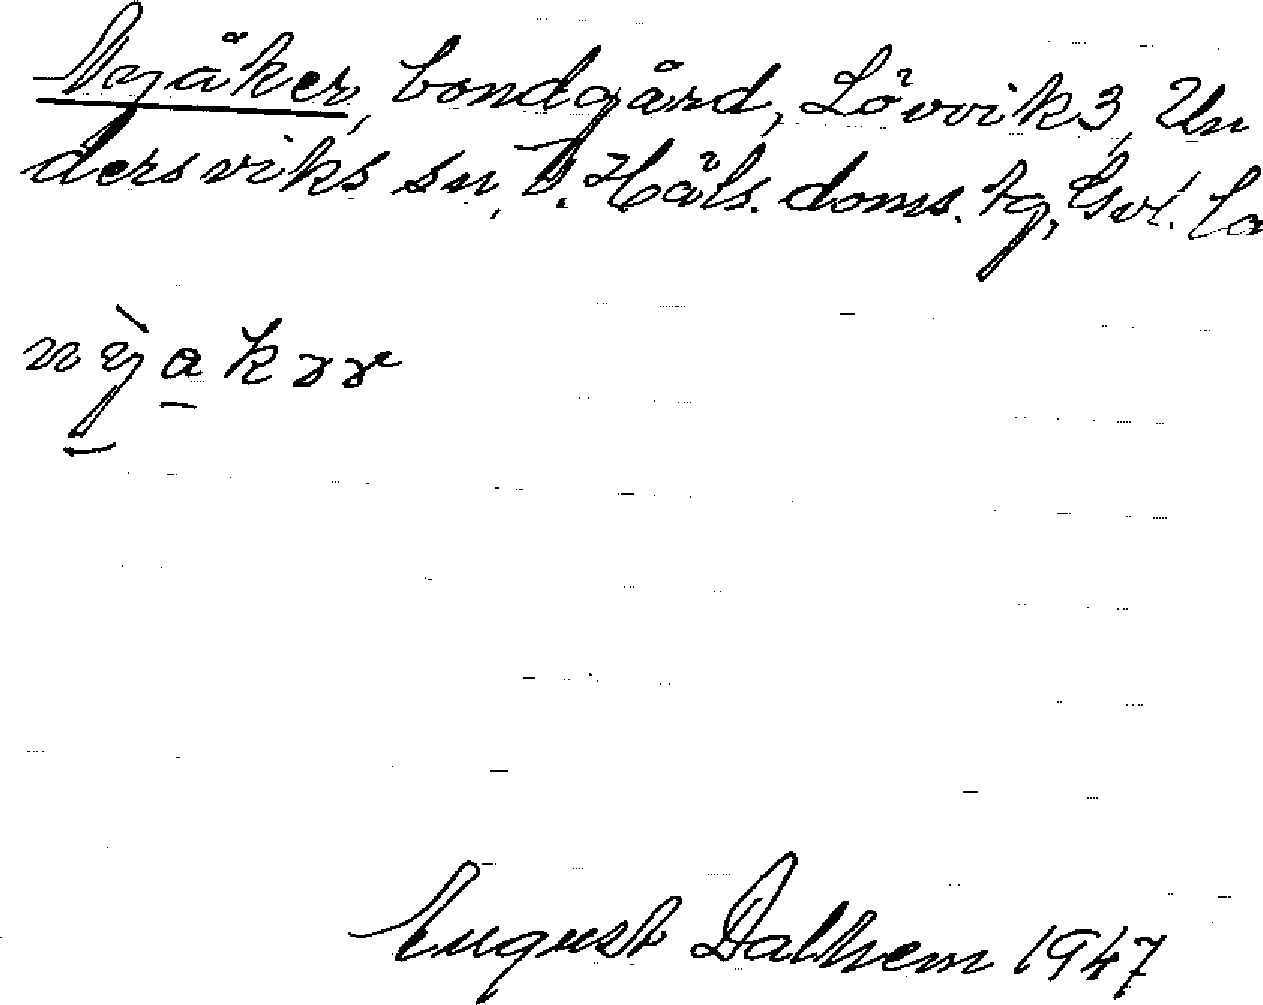 Nyåker, bondgård, Lövvik 3, Un
dersviks sn, V. Häls. doms. tg, Gvl. la
nỳakrr
August Dalhem 1947